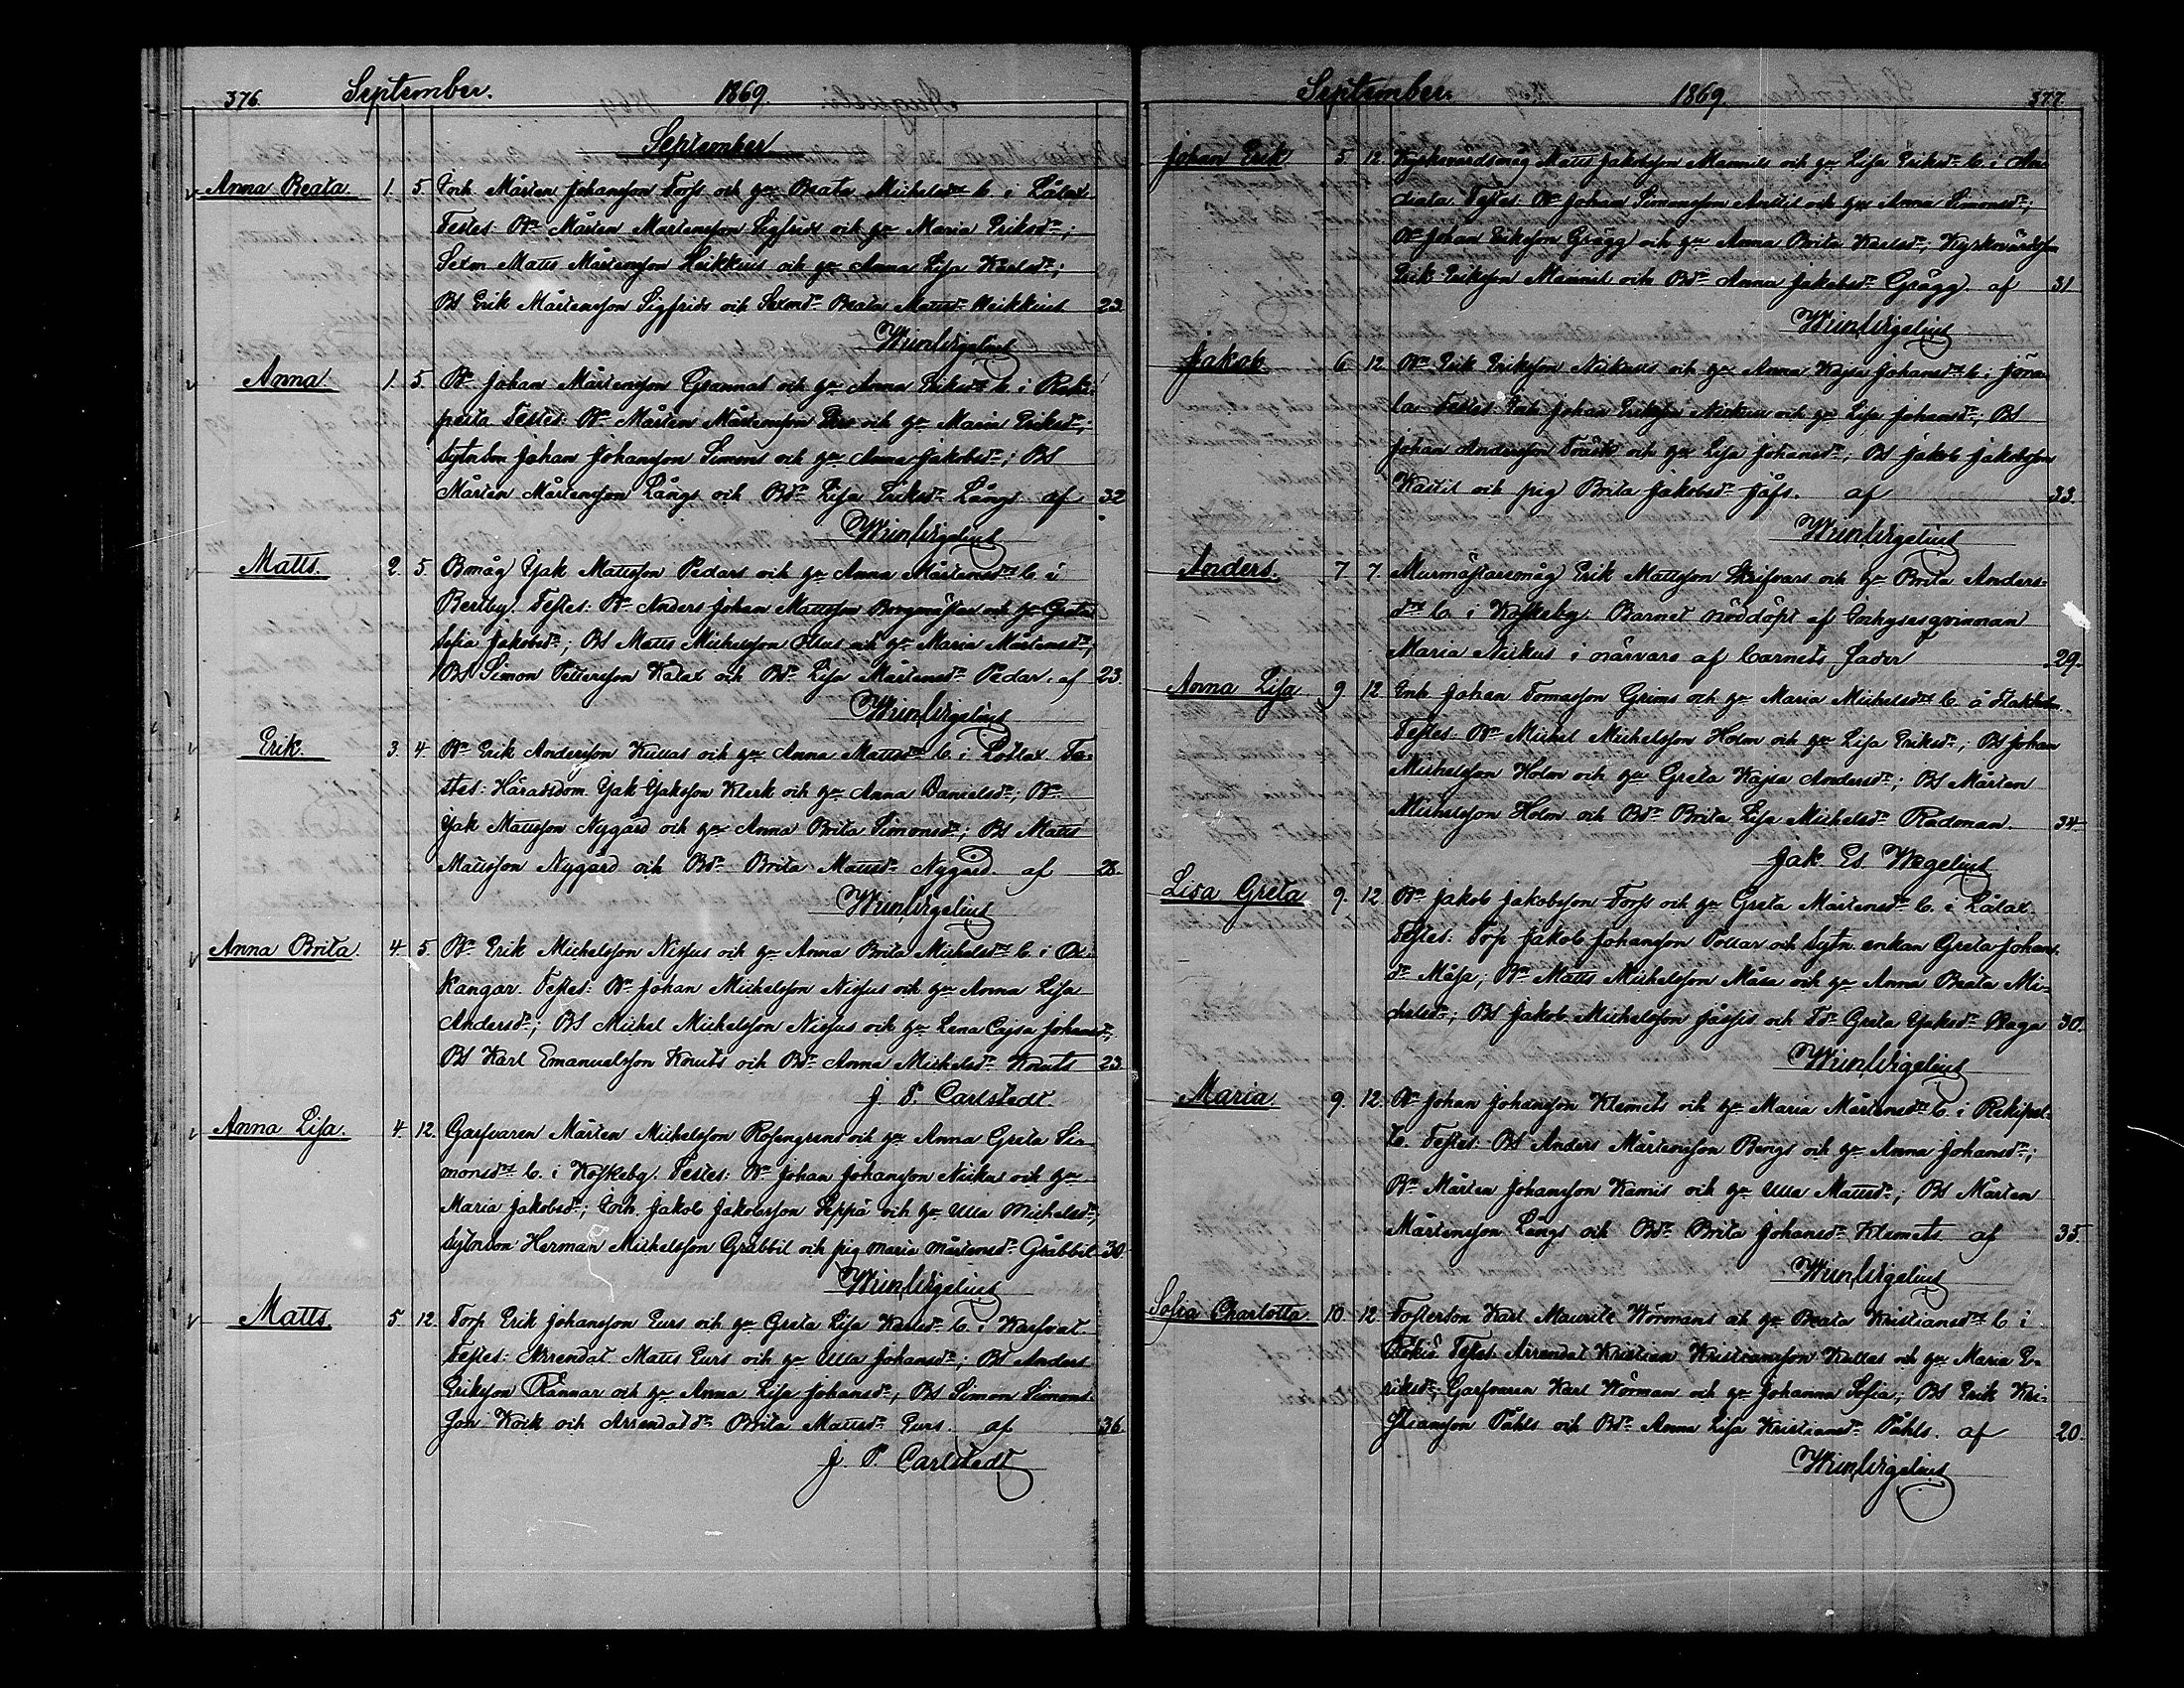 376. September. 1869.
September
Anna Beata. 1. 5. Inh. Mårten Johansson Forss och h:u Beata Michelsd:r b. i Låtax.
Testes: B:n Mårten Mårtensson Sigfrids och h:u Maria Eriksd:r;
Sexm. Matts Mårtensson Heikkius och h:u Anna Lisa Karlsd:r;
BS Erik Mårtensson Sigfrids och Sexmd:r Beata Mattsd:r Heikkius 23.
Wilh Wegelius
Anna. 1. 5. B:n Johan Mårtensson Grannas och h:u Anna Eriksd:r b. i Reki-
pelta Testes: B:n Mårten Mårtensson och h:u Maria Eriksd:r;
Sytn.bon Johan Johansson Simons och h:u Anna Jakobsd:r; BS
Mårten Mårtensson Långs och Bd:r Lisa Eriksd:r Långs af 32.
Wilh Wegelius
Matts. 2. 5. Bmåg Isak Mattsson Pedars och h:u Anna Mårtensd:r b. i
Bertby. Testes: B:n Anders Johan Mattsson Borgmästar och h:u Greta
Sofia Jakobsd:r; BS Matts Michelsson och h:u Maria Mårtensd:r;
BS Simon Pettersson Kalax och Bd:r Lisa Mårtensd:r Pedar. af 23.
Wilh Wegelius
Erik. 3. 4. B:n Erik Andersson Kullas och h:u Anna Mattsd:r b. i Lotlax. Te-
stes: Häradsdom. Isak Isaksson Klerk och h:u Anna Danielsd:r; B:n
Isak Mattsson Nygård och h:u Anna Brita Simonsd:r; BS Matts
Mattsson Nygård och Bd:r Brita Mattsd:r Nygård. af 28.
Wilh Wegelius
Anna Brita. 4. 5. B:n Erik Michelsson Nissus och h:u Anna Brita Michelsd:r b. i Ox-
kangar. Testes: B:n Johan Michelsson Nissus och h:u Anna Lisa
Andersd:r; BS Michel Michelsson Nissus och h:u Lena Cajsa Johansd:r;
BS Karl Emanuelsson Knuts och Bd:r Anna Michelsd:r Knuts 23.
J. P. Carlstedt.
Anna Lisa. 4. 12. Garfvaren Mårten Michelsson Rosengrens och h:u Anna Greta Si-
monsd:r b. i Koskeby. Testes: B:n Johan Johansson Nickus och h:u
Maria Jakobsd:r; Inh. Jakob Jakobsson Seppä och h:u Ulla Michelsd:r;
Sytnson Herman Michelsson Gräbbil och pig Maria Mårtensd:r Gräbbil 30.
Wilh Wegelius
Matts. 5. 12. Torp Erik Johansson Eurs och h:u Greta Lisa Karlsd:r b. i Karfvat.
Testes: Arrendat. Matts Eurs och h:u Ulla Johansd:r; BS Anders
Eriksson Rännar och h:u Anna Lisa Johansd:r; BS Simon Simons-
son Koik och Arrendatd:r Brita Mattsd:r Eurs. af 36.
J. P. Carlstedt
September. 1869. 377.
Johan Erik 5. 12. Kyrkvärdsmåg Matts Jakobsson Mannils och h:u Lisa Eriksd:r b. i An-
diala. Testes: B:n Johan Simonsson Antils och h:u Anna Simonsd:r;
B:n Johan Eriksson Grägg och h:u Anna Brita Karlsd:r; Kyrkvärdsson
Erik Eriksson Mannil och Bd:r Anna Jakobsd:r Grägg. af 31.
Wilh Wegelius
Jakob. 6. 12. B:n Erik Eriksson Nickuns och h:u Anna Kajsa Johansd:r b. i Jöra-
la. Testes: Inh Johan Eriksson och h:u Lisa Johansd:r; BS
Johan Andersson Träsk och h:u Lisa Johansd:r; BS Jakob Jakobsson
Kastil och pig Brita Jakobsd:r Jåfs. af 33.
Wilh Wegelius
Anders. 7. 7. Murmästaremåg Erik Mattsson Skrifvars och h:u Brita Anders-
d:r b. i Koskeby. Barnet nöddöpt af Inhysesqvinnan
Maria Nickus i närvaro af barnets fader 29.
Anna Lisa 9. 12. Inh Johan Tomasson Grims och h:u Maria Michelsd:r b. å
Testes: B:n Michel Michelsson Holm och h:u Lisa Eriksd:r; BS Johan
Michelsson Holm och h:u Greta Kajsa Andersd:r; BS Mårten
Michelsson Holm och Bd:r Brita Lisa Michelsd:r Radonan. 34.
Jak. Ed. Wegelius
Lisa Greta 9. 12. B:n Jakob Jakobsson Forss och h:u Greta Mårtensd:r b. i Låtax.
Testes: Torp. Jakob Johansson Pottar och Sytn. enkan Greta Johans-
d:r Måsa; B:n Matts Michelsson Måsa och h:u Anna Beata Mi-
chelsd:r; BS Jakob Michelsson Jåssis och Td:r Greta Isaksd:r Haga 30.
Wilh Wegelius
Maria 9. 12. B:n Johan Johansson Klemets och h:u Maria Mårtensd:r b. i Rekipel-
to. Testes: BS Anders Mårtensson Bengs och h:u Anna Johansd:r;
B:n Mårten Johansson Kamis och h:u Ulla Mattsd:r; BS Mårten
Mårtensson Långs och Bd:r Brita Johansd:r Klemets af 35.
Wilh Wegelius
Sofia Charlotta. 10. 12. Fosterson Karl Maurits Wörmans och h:u Beata Kristiansd:r b. i
Rökiö Testes: Arrendat Kristian Kristiansson Kullas och h:u Maria E-
riksd:r; Garfvaren Karl Wörman och h:u Johanna Sofia; BS Erik Kri-
stiansson Påhls och Bd:r Anna Lisa Kristiansd:r Påhls. af 20.
Wilh Wegelius